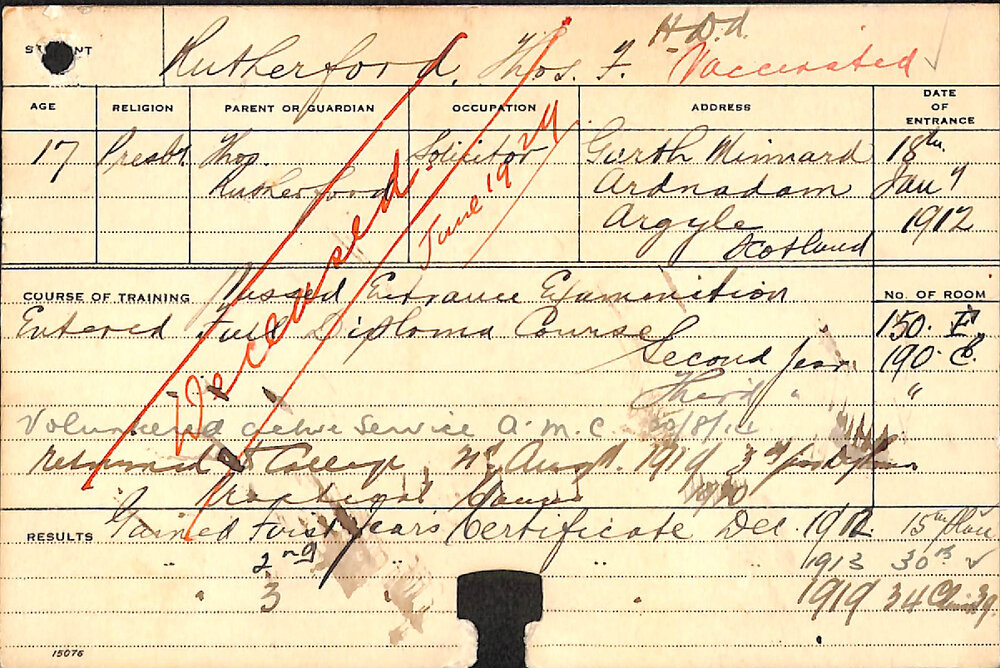 STUDENT Rutherford, Thos. F. H.D.d.
Vaccinated
AGE RELIGION PARENT OR GUARDIAN OCCUPATION ADDRESS DATE OF ENTRANCE
17 Presby. Thos. Solicitor Garth Minnard 18th
Rutherford Ardnadam Jany
Argyle 1912
Scotland
Deceased.
June 1929
COURSE OF TRAINING Passed Entrance Examination No. OF ROOM
Entered Full Diploma Course 150. E.
Second Year 190. C.
Third " "
Volunteered active Service A.M.C. 20/8/14
Returned to College, Augt. 1919 3rd
RESULTS Gained First Year's Certificate Dec. 1912. 15th Place
" 2nd " " 1913 30th
" 3 " " 1919 34
15076